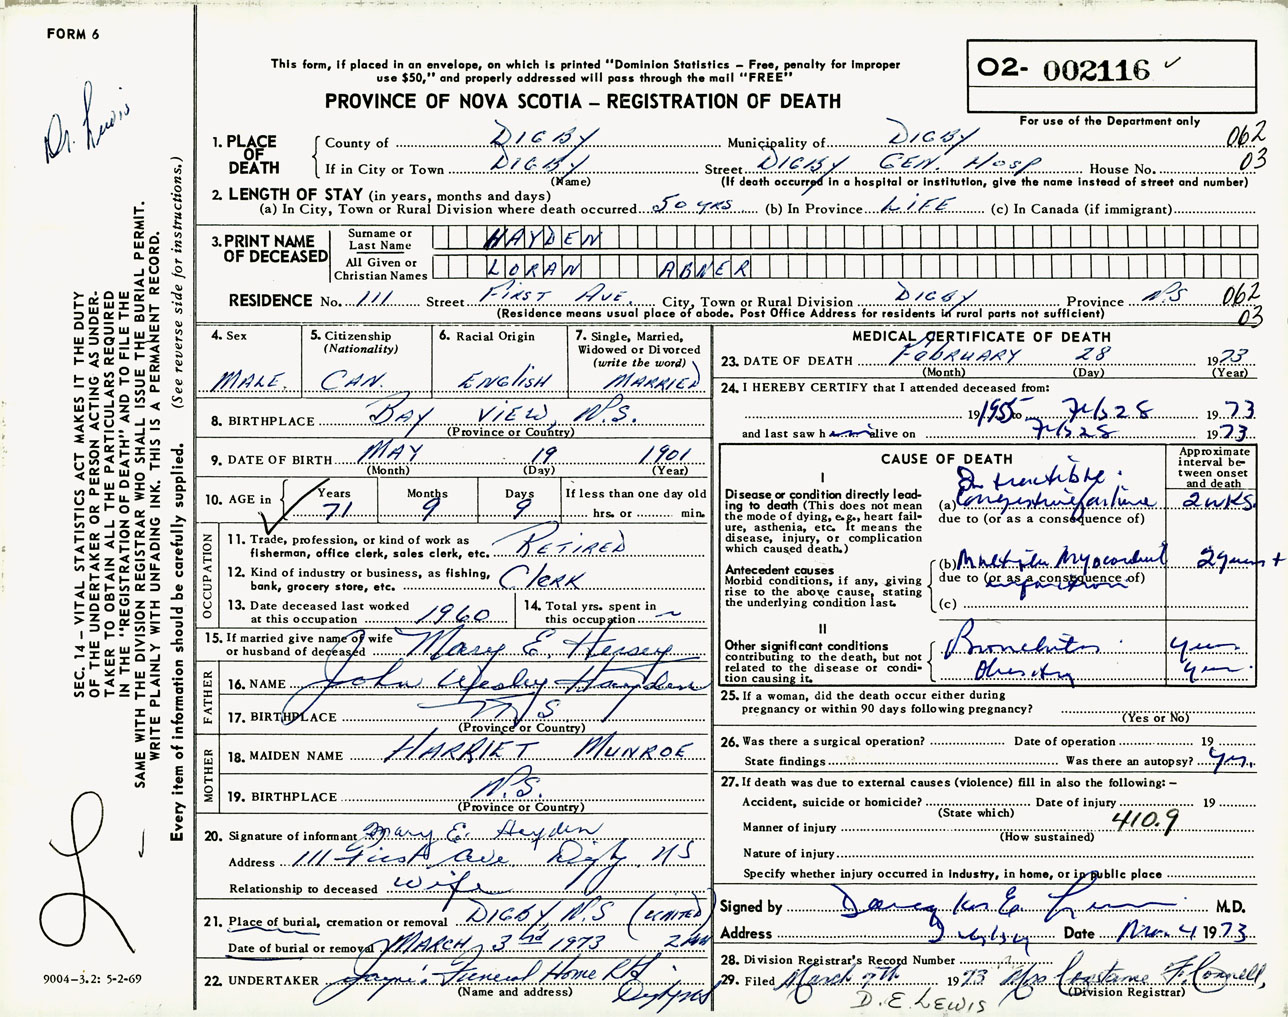 FORM 6
Dr. Lewis
This form, if placed in an envelope, on which is printed "Dominion Statistics – Free, penalty for improper
use $50," and properly addressed will pass through the mail "FREE"
PROVINCE OF NOVA SCOTIA – REGISTRATION OF DEATH
02- 002116 ✓
For use of the Department only
062
03
1. PLACE OF DEATH
County of DIGBY Municipality of DIGBY
If in City or Town DIGBY Street DIGBY GEN. HOSP House No.
(Name) (If death occurred in a hospital or institution, give the name instead of street and number)
2. LENGTH OF STAY (in years, months and days)
(a) In City, Town or Rural Division where death occurred 50 YRS (b) In Province LIFE (c) In Canada (if immigrant)
3. PRINT NAME OF DECEASED
Surname or Last Name HAYDEN
All Given or Christian Names LORAN ABNER
RESIDENCE No. 111 Street FIRST AVE. City, Town or Rural Division DIGBY Province N.S 062
(Residence means usual place of abode. Post Office Address for residents in rural parts not sufficient) 03
4. Sex MALE.
5. Citizenship (Nationality) CAN.
6. Racial Origin ENGLISH
7. Single, Married, Widowed or Divorced (write the word) MARRIED
8. BIRTHPLACE BAY VIEW, N.S.
(Province or Country)
9. DATE OF BIRTH MAY 19 1901
(Month) (Day) (Year)
10. AGE in Years 71 Months 9 Days 9 If less than one day old hrs. or min.
OCCUPATION
11. Trade, profession, or kind of work as fisherman, office clerk, sales clerk, etc. RETIRED
12. Kind of industry or business, as fishing, bank, grocery store, etc. CLERK
13. Date deceased last worked at this occupation 1960
14. Total yrs. spent in this occupation ~
15. If married give name of wife or husband of deceased Mary E. Hersey
FATHER
16. NAME John Wesley Hayden
17. BIRTHPLACE N S
(Province or Country)
MOTHER
18. MAIDEN NAME HARRIET MUNROE
19. BIRTHPLACE N.S.
(Province or Country)
20. Signature of informant Mary E. Hayden
Address 111 First Ave Digby, NS
Relationship to deceased wife
21. Place of burial, cremation or removal DIGBY N.S (UNITED)
Date of burial or removal MARCH 3rd 1973
22. UNDERTAKER Jayne's Funeral Home
(Name and address)
MEDICAL CERTIFICATE OF DEATH
23. DATE OF DEATH FEBRUARY 28 1973
(Month) (Day) (Year)
24. I HEREBY CERTIFY that I attended deceased from:
19 1955 to Feb 28 1973
and last saw him alive on Feb 28 1973
CAUSE OF DEATH
Approximate interval between onset and death
I
Disease or condition directly leading to death (This does not mean the mode of dying, e.g., heart failure, asthenia, etc. It means the disease, injury, or complication which caused death.)
(a) Intractible Congestive failure 2 wks.
due to (or as a consequence of)
Antecedent causes
Morbid conditions, if any, giving rise to the above cause, stating the underlying condition last.
(b) Multiple Myocardial infarction 2 years +
due to (or as a consequence of)
(c)
II
Other significant conditions contributing to the death, but not related to the disease or condition causing it.
Bronchitis years
Obesity years
25. If a woman, did the death occur either during
pregnancy or within 90 days following pregnancy?
(Yes or No)
26. Was there a surgical operation? Date of operation 19
State findings Was there an autopsy? Yes.
27. If death was due to external causes (violence) fill in also the following: –
Accident, suicide or homicide? Date of injury 19
(State which)
Manner of injury 410.9
(How sustained)
Nature of injury
Specify whether injury occurred in industry, in home, or in public place
Signed by M.D.
Address Digby Date Mar. 4 1973
28. Division Registrar's Record Number
29. Filed March 7th 1973 Mrs Constance F. Connell,
(Division Registrar)
D. E. LEWIS
SEC. 14 – VITAL STATISTICS ACT MAKES IT THE DUTY
OF THE UNDERTAKER OR PERSON ACTING AS UNDER-
TAKER TO OBTAIN ALL THE PARTICULARS REQUIRED
IN THE "REGISTRATION OF DEATH" AND TO FILE THE
SAME WITH THE DIVISION REGISTRAR WHO SHALL ISSUE THE BURIAL PERMIT.
WRITE PLAINLY WITH UNFADING INK. THIS IS A PERMANENT RECORD.
Every item of information should be carefully supplied. (See reverse side for instructions.)
9004–3.2: 5-2-69